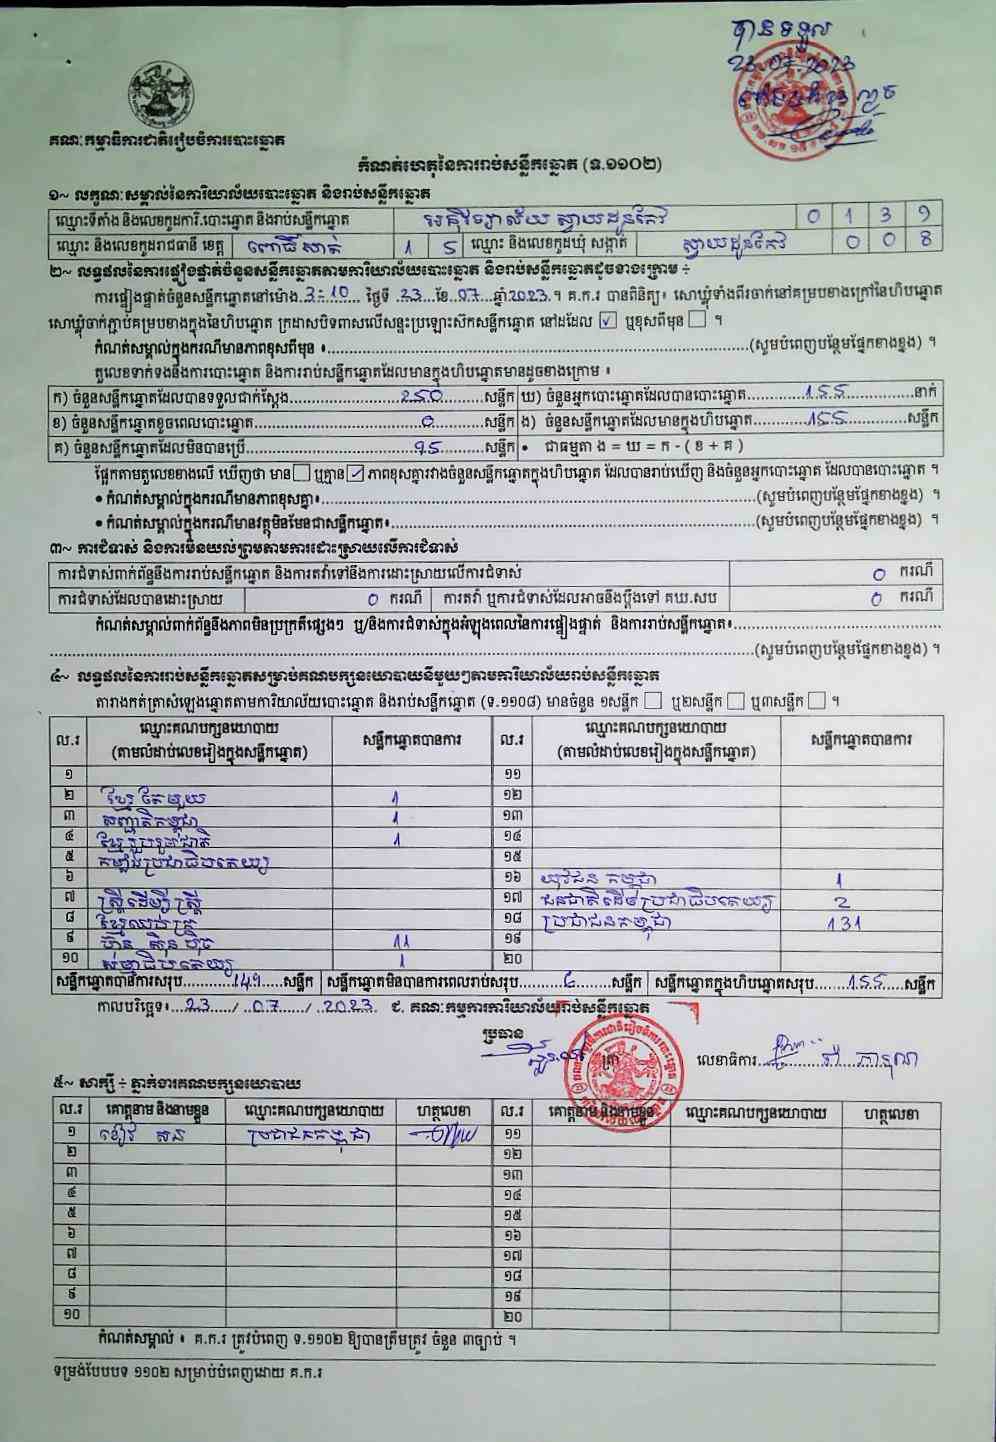 បានទទួល
23.07.2023
គណៈកម្មាធិការជាតិរៀបចំការបោះឆ្នោត
កំណត់ហេតុនៃការរាប់សន្លឹកឆ្នោត (ទ.១១០២)
១~ លក្ខណៈសម្គាល់នៃការិយាល័យបោះឆ្នោត និងរាប់សន្លឹកឆ្នោត
ឈ្មោះទីតាំង និងលេខកូដការិ.បោះឆ្នោត និងរាប់សន្លឹកឆ្នោត អនុវិទ្យាល័យ ស្វាយដូនកែវ 0 1 3 9
ឈ្មោះ និងលេខកូដរាជធានី ខេត្ត ពោធិ៍សាត់ 1 5 ឈ្មោះ និងលេខកូដឃុំ សង្កាត់ ស្វាយដូនកែវ 0 0 8
២~ លទ្ធផលនៃការផ្ទៀងផ្ទាត់ចំនួនសន្លឹកឆ្នោតតាមការិយាល័យបោះឆ្នោត និងរាប់សន្លឹកឆ្នោតដូចខាងក្រោម ÷
ការផ្ទៀងផ្ទាត់ចំនួនសន្លឹកឆ្នោតនៅម៉ោង 3:10 ថ្ងៃទី 23 ខែ 07 ឆ្នាំ 2023 ។ គ.ក.រ បានពិនិត្យ៖ សោឃ្លុំទាំងពីរចាក់នៅគម្របខាងក្រៅនៃហិបឆ្នោត
សោឃ្លុំចាក់ភ្ជាប់គម្របខាងក្នុងនៃហិបឆ្នោត ក្រដាសបិទពាសលើសន្ទះប្រឡោះស៊កសន្លឹកឆ្នោត នៅដដែល ☑ ឬខុសពីមុន ☐ ។
កំណត់សម្គាល់ក្នុងករណីមានភាពខុសពីមុន ៖ (សូមបំពេញបន្ថែមផ្នែកខាងខ្នង) ។
តួលេខទាក់ទងនឹងការបោះឆ្នោត និងការរាប់សន្លឹកឆ្នោតដែលមានក្នុងហិបឆ្នោតមានដូចខាងក្រោម ៖
ក) ចំនួនសន្លឹកឆ្នោតដែលបានទទួលជាក់ស្តែង 250 សន្លឹក ឃ) ចំនួនអ្នកបោះឆ្នោតដែលបានបោះឆ្នោត 155 នាក់
ខ) ចំនួនសន្លឹកឆ្នោតខូចពេលបោះឆ្នោត 0 សន្លឹក ង) ចំនួនសន្លឹកឆ្នោតដែលមានក្នុងហិបឆ្នោត 155 សន្លឹក
គ) ចំនួនសន្លឹកឆ្នោតដែលមិនបានប្រើ 95 សន្លឹក • ជាធម្មតា ង = ឃ = ក - ( ខ + គ )
ផ្អែកតាមតួលេខខាងលើ ឃើញថា មាន ☐ ឬគ្មាន ☑ ភាពខុសគ្នារវាងចំនួនសន្លឹកឆ្នោតក្នុងហិបឆ្នោត ដែលបានរាប់ឃើញ និងចំនួនអ្នកបោះឆ្នោត ដែលបានបោះឆ្នោត ។
• កំណត់សម្គាល់ក្នុងករណីមានភាពខុសគ្នា៖ (សូមបំពេញបន្ថែមផ្នែកខាងខ្នង) ។
• កំណត់សម្គាល់ក្នុងករណីមានវត្ថុមិនមែនជាសន្លឹកឆ្នោត៖ (សូមបំពេញបន្ថែមផ្នែកខាងខ្នង) ។
៣~ ការជំទាស់ និងការមិនយល់ព្រមតាមការដោះស្រាយលើការជំទាស់
ការជំទាស់ពាក់ព័ន្ធនឹងការរាប់សន្លឹកឆ្នោត និងការតវ៉ាទៅនឹងការដោះស្រាយលើការជំទាស់ 0 ករណី
ការជំទាស់ដែលបានដោះស្រាយ 0 ករណី ការតវ៉ា ឬការជំទាស់ដែលអាចនឹងប្តឹងទៅ គឃ.សប 0 ករណី
កំណត់សម្គាល់ពាក់ព័ន្ធនឹងភាពមិនប្រក្រតីផ្សេងៗ ឬ/និងការជំទាស់ក្នុងអំឡុងពេលនៃការផ្ទៀងផ្ទាត់ និងការរាប់សន្លឹកឆ្នោត៖
(សូមបំពេញបន្ថែមផ្នែកខាងខ្នង) ។
៤~ លទ្ធផលនៃការរាប់សន្លឹកឆ្នោតសម្រាប់គណបក្សនយោបាយនីមួយៗតាមការិយាល័យរាប់សន្លឹកឆ្នោត
តារាងកត់ត្រាសំឡេងឆ្នោតតាមការិយាល័យបោះឆ្នោត និងរាប់សន្លឹកឆ្នោត (ទ.១១០៨) មានចំនួន ១សន្លឹក ☐ ឬ២សន្លឹក ☐ ឬ៣សន្លឹក ☐ ។
ល.រ ឈ្មោះគណបក្សនយោបាយ (តាមលំដាប់លេខរៀងក្នុងសន្លឹកឆ្នោត) សន្លឹកឆ្នោតបានការ ល.រ ឈ្មោះគណបក្សនយោបាយ (តាមលំដាប់លេខរៀងក្នុងសន្លឹកឆ្នោត) សន្លឹកឆ្នោតបានការ
១ ១១
២ ខ្មែរតែមួយ 1 ១២
៣ សញ្ជាតិកម្ពុជា 1 ១៣
៤ ខ្មែររួបរួមជាតិ 1 ១៤
៥ កម្លាំងប្រជាធិបតេយ្យ ១៥
៦ ១៦ យុវជន កម្ពុជា 1
៧ ស្ត្រីដើម្បីស្ត្រី ១៧ ជនជាតិដើមប្រជាធិបតេយ្យ 2
៨ ខ្មែរឈប់ក្រ ១៨ ប្រជាជនកម្ពុជា 131
៩ ហ៊្វុនស៊ិនប៉ិច 11 ១៩
១០ សំបុកឃ្មុំ 1 ២០
សន្លឹកឆ្នោតបានការសរុប 149 សន្លឹក សន្លឹកឆ្នោតមិនបានការពេលរាប់សរុប 6 សន្លឹក សន្លឹកឆ្នោតក្នុងហិបឆ្នោតសរុប 155 សន្លឹក
កាលបរិច្ឆេទ៖ 23 / 07 / 2023 ជ. គណៈកម្មការការិយាល័យរាប់សន្លឹកឆ្នោត
ប្រធាន
ត្រា លេខាធិការ
៥~ សាក្សី ÷ ភ្នាក់ងារគណបក្សនយោបាយ
ល.រ គោត្តនាម និងនាមខ្លួន ឈ្មោះគណបក្សនយោបាយ ហត្ថលេខា ល.រ គោត្តនាម និងនាមខ្លួន ឈ្មោះគណបក្សនយោបាយ ហត្ថលេខា
១ ខៀវ សន ប្រជាជនកម្ពុជា ១១
២ ១២
៣ ១៣
៤ ១៤
៥ ១៥
៦ ១៦
៧ ១៧
៨ ១៨
៩ ១៩
១០ ២០
កំណត់សម្គាល់ ៖ គ.ក.រ ត្រូវបំពេញ ទ.១១០២ ឱ្យបានត្រឹមត្រូវ ចំនួន ៣ច្បាប់ ។
ទម្រង់បែបបទ ១១០២ សម្រាប់បំពេញដោយ គ.ក.រ